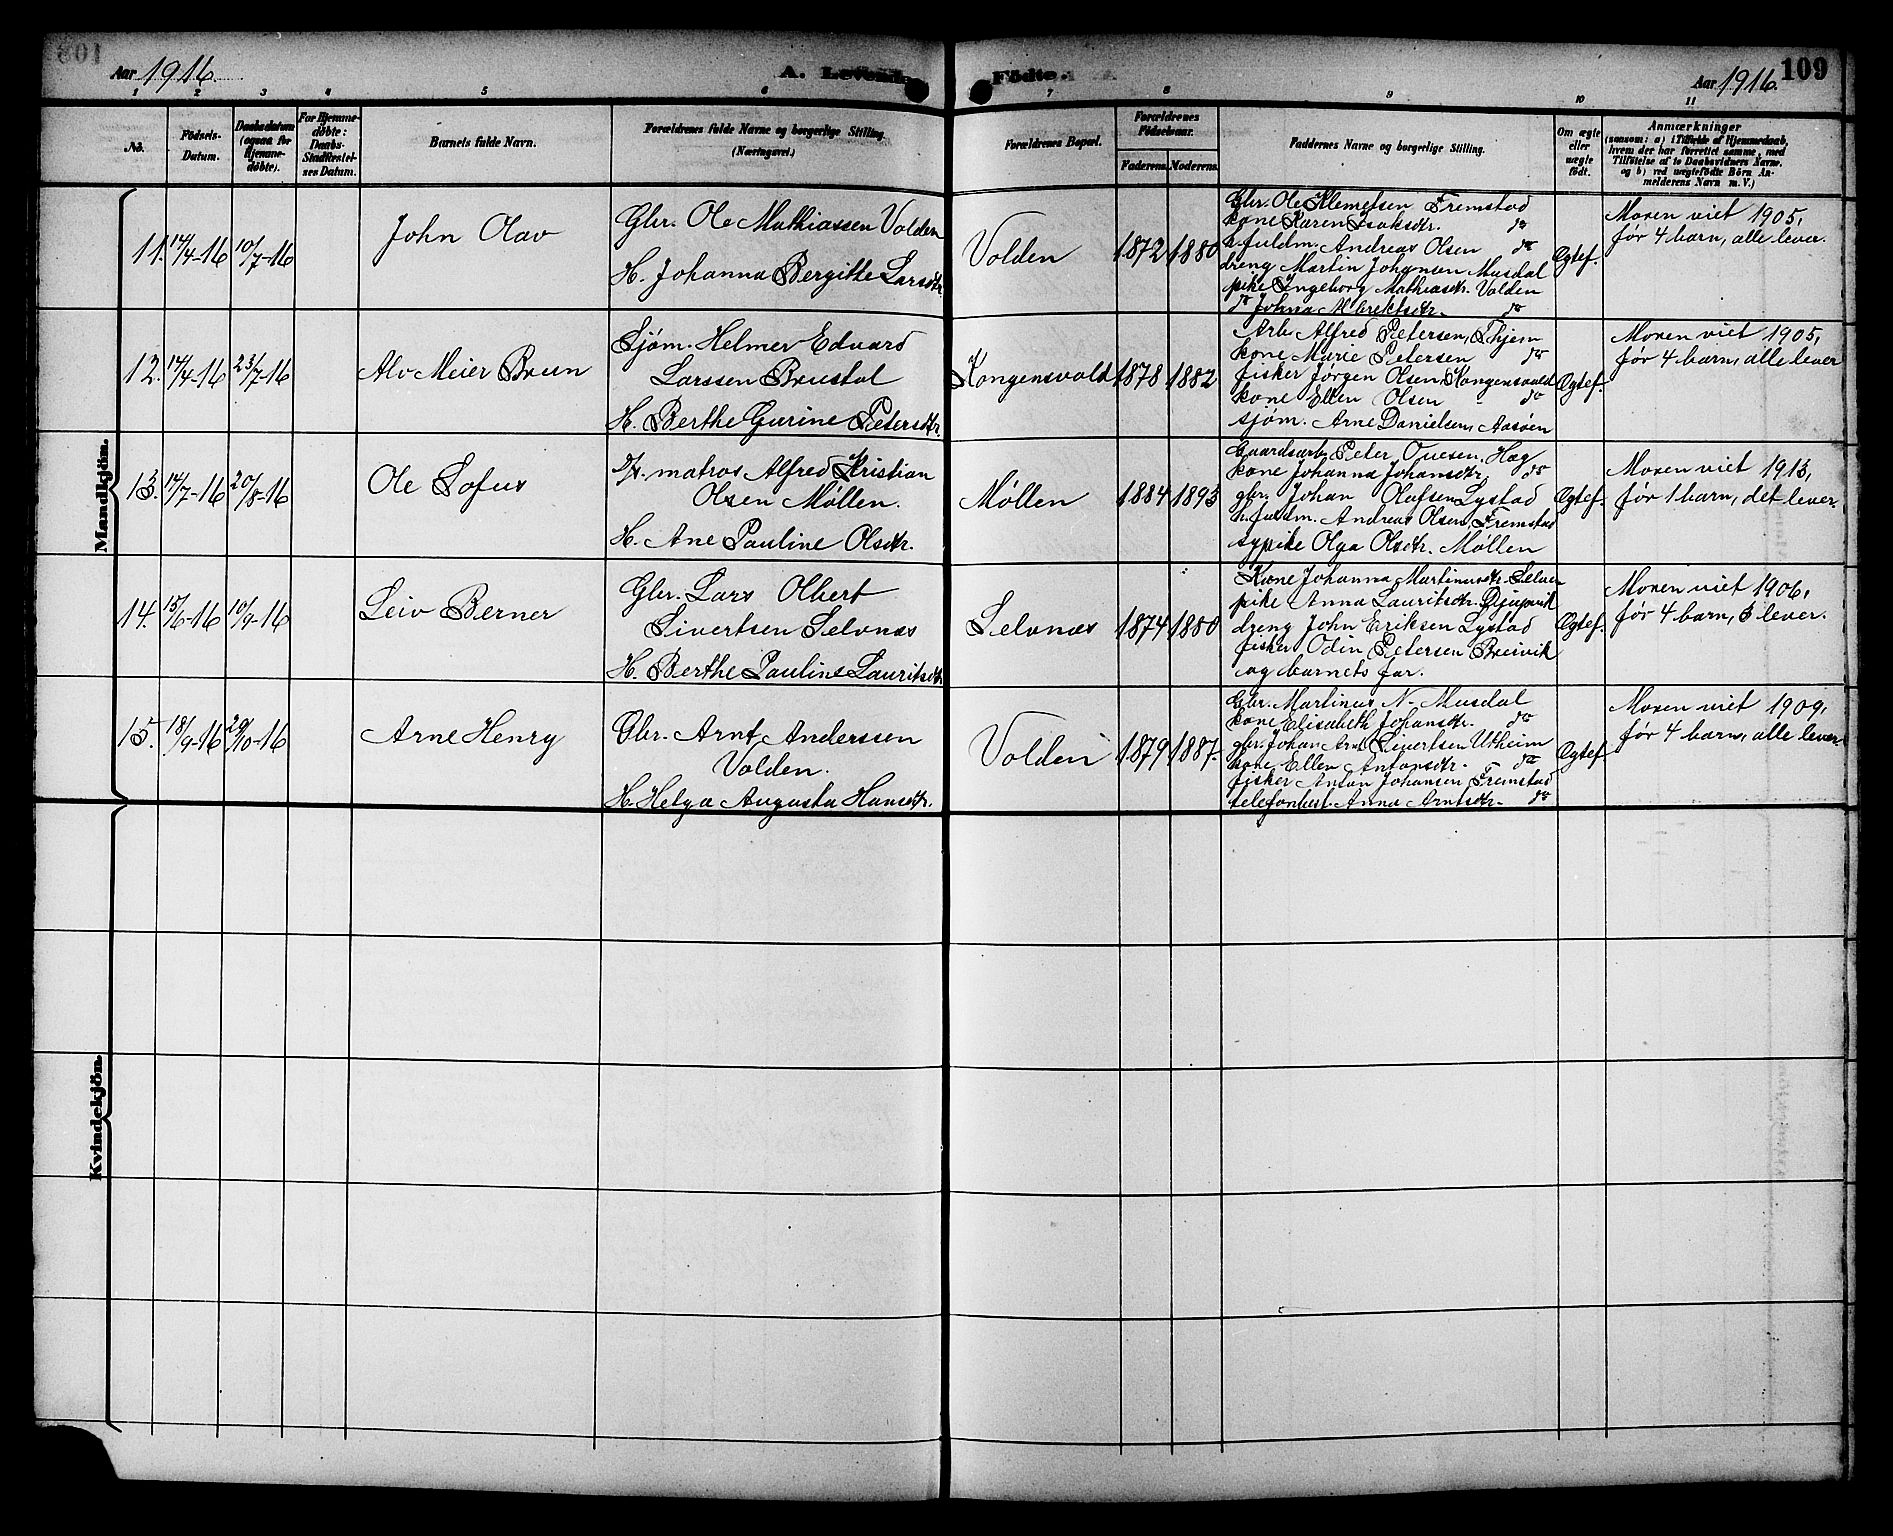 Aar 1916.
A. Levende
Fødte.
Aar 1916.
109
1 2 3 4 5 6 7 8 9 10 11
No.
Födsels-
Datum.
Daabsdatum
(ogsaa for
Hjemme-
døbte).
For Hjemme-
døbte:
Daabs-
Stadfæstel-
ses Datum.
Barnets fulde Navn.
Forældrenes fulde Navne og borgerlige Stilling.
(Næringsvei.)
Forældrenes Bopæl.
Forældrenes
Födselsaar.
Faderens. Moderens.
Faddernes Navne og borgerlige Stilling.
Om ægte
eller
uægte
født.
Anmærkninger
(saasom: a) i Tilfælde af Hjemmedaab,
hvem der har forrettet samme, med
Tilføielse af to Daabsvidners Navne,
og b) ved uægtefødte Börn An-
melderens Navn m. V.)
Mandkjön.
11. 14/4-16 10/7-16
John Olav
Gbr. Ole Mathiassen Volden
H. Johanna Bergitte Larsdtr.
Volden
1872 1880
Gbr. Ole Klemetsen Fremstad
kone Karen Isaksdtr. do
h. fuldm. Andreas Olsen do
dreng Martin Johansen Musdal
pike Ingeborg Mathiasdtr. Volden
do Johna Albrektsdtr. do
Ægtef.
Moren viet 1905,
før 4 barn, alle lever.
12. 14/4-16 23/7-16
Alv Meier Brun
Sjøm. Helmer Edvard
Larssen Brustol
H. Berthe Gurine Petersdtr.
Kongensvold
1878 1882
Arb. Alfred Petersen, Thjem
kone Marie Petersen do
fisker Jørgen Olsen, Kongensvold
kone Ellen Olsen do
sjøm. Arne Danielsen, Aasøen
Ægtef.
Moren viet 1905,
før 4 barn, alle lever
13. 14/7-16 20/8-16
Ole Sofus
matros Alfred Kristian
Olsen Møllen.
H. Ane Pauline Olsdtr.
Møllen
1884 1893
Gaardsarb. Peter Ovesen, Hag
kone Johanna Johansdtr. do
gbr. Johan Olufsen Lystad
h. fuldm. Andreas Olsen, Fremstad
sypike Olga Olsdtr. Møllen
Ægtef.
Moren viet 1913,
før 1 barn, det lever.
14. 15/6-16 10/9-16
Leiv Berner
Gbr. Lars Olbert
Sivertsen Selvnæs
H. Berthe Pauline Lauritsdtr.
Selvnæs
1874 1880
Kone Johanna Martinusdtr. Selven
pike Anna Lauritsdtr. Djupvik
dreng John Eriksen Lystad
fisker Odin Petersen Breivik
og barnets far.
Ægtef.
Moren viet 1906,
før 4 barn, 3 lever.
15. 18/9-16 29/10-16
Arne Henry
Gbr. Arnt Anderssen
Volden.
H. Helga Augusta Hansdtr.
Volden
1879 1887.
Gbr. Martinus N. Musdal
kone Elisabeth Johansdtr. do
gbr. Johan Arnt Sivertsen Utheim
kone Ellen Antonsdtr. do
fisker Anton Johansen Fremstad
telefonbest. Anna Arntsdtr. do
Ægtef.
Moren viet 1909,
før 4 barn, alle lever.
Kvindekjön.